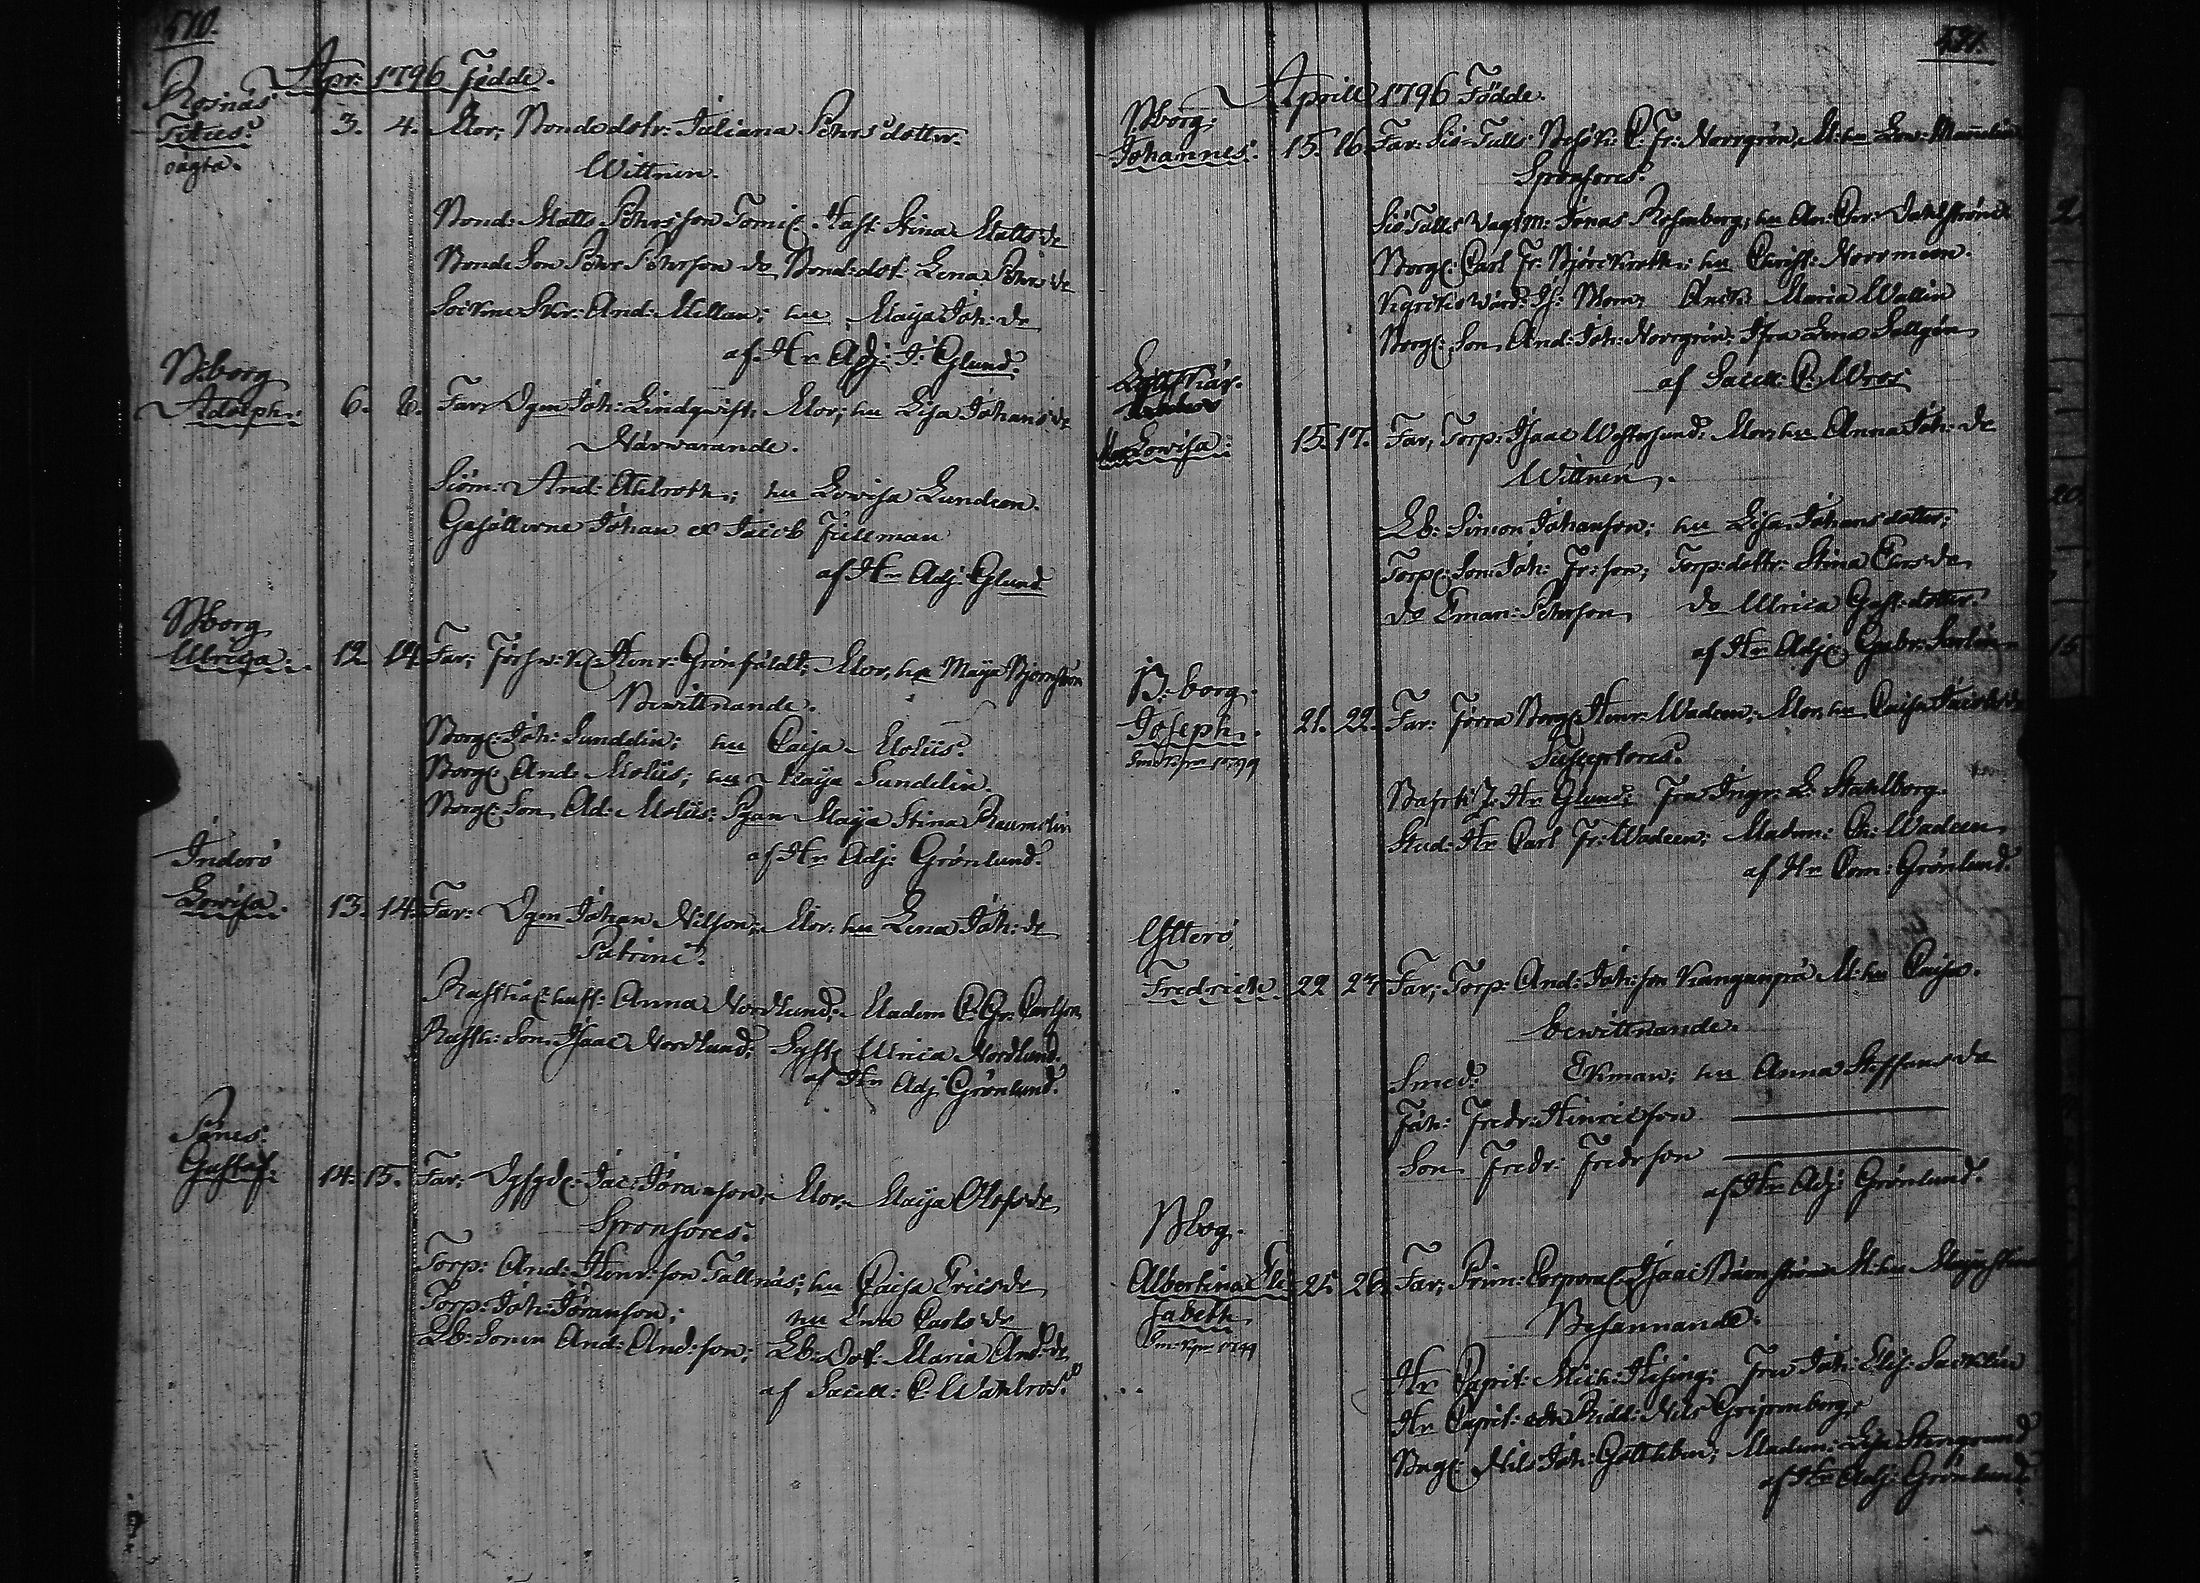 510.
Apr: 1796 Födde.
Rosnäs
Titus. 3. 4. Mor; Bondedotr: Juliana Pehrs dotter.
oägta.
Wittnen.
Bond: Matts Pehrsson Tomic. Hust. Stina Matts de
Bonde Son Pehr Pehrson do Bond: dot: Lena Pehrs de
Sockne Skr: And: Millan; hu Maija Joh: de
af Hr Adj: J: Glund.
N:borg
Adolph. 6. 8. Far; Dgm Joh: Lindqwist, Mor; hu Lisa Johans de
Närwarande.
Siöm: And: Ahlroth; hu Lovisa Lundeen.
Gesällerne Johan et Jacob Fillman
af Hr Adj: Glund
Nborg
Ulrica. 12. 14. Far; Henr: Grönfäldt; Mor, hu Maija Björnström
Bewittnande.
Borg: Joh: Sundelin; hu Caisa Molüs.
Borg: And: Molüs; hu Maija Sundelin.
Borg: Son, Ad: Molüs; Pgan Maija Stina Raumelin
af Hr Adj: Grönlund.
Inderö
Lovisa. 13. 14. Far: Dgm Johan Nilson; Mor: hu Lena Joh: de
Patrini.
hust: Anna Nordlund; Madem C. Gr: Carlson
Son Isaac Nordlund; Syst: Ulrica Nordlund.
af Hr Adj: Grönlund.
Pänes.
Gustaf. 14. 15. Far; Jac: Göranson; Mor; Maija Olofs de
Sponsores.
Torp: And: Henr: son Tallnäs; hu Caisa Erics de
Torp: Joh: Göranson; hu Ewa Carls de
Lb: Sonen And: And: son; Lb: Dot: Maria And: de
af Sacell: C. Wahlros.
511.
Aprill 1796 Födde.
Nborg:
Johannes. 15. 16. Far: Siö-Tulls: Besök: C. Fr: Norrgrén, M: hu Lov:
Sponsores.
SiöTulls Vagtm: Jonas Rosenberg; hu An: Chr: Dahlström
Borg: Carl Fr: Björckroth; hu Christ: Norrmeen.
Maria Wallin
Borg: Son, And: Joh: Norrgrén; Jfru Lena Sallgén
af Sacell: C. Wros
Lovisa: 15. 17. Far; Torp: Isaac Westersund: Mor, hu Anna Joh: de
Wittnen.
Lb: Simon Johanson; hu Lisa Johans dotter;
Torp: Son: Joh: Fr: son; Torp: dottr: Stina Ers: de
do Eman: Pehrson do Ulrica Gust: dotter.
af Hr Adj: Gabr:
N:borg
Joseph. 21. 22. Far: Förra Borg: Henr: Wadeen; Mor, hu Caisa Jacobs de
1799
Susceptores.
Hr Glund; Fru Ingr: L: Stahlberg.
Stud: Hr Carl Fr: Wadeen; Madem: Ch: Wadeen
af Hr Com: Grönlund.
Ytterö
Fredrich. 22 24. Far; Torp: And: Joh: son M: hu Caisa.
bewittnande.
Smed: Ekman; hu Anna Steffans de
Joh: Fredr: Hinricson
Son Fredr: Fredrson
af Hr Adj: Grönlund.
Nborg.
Albertina Eli- 25. 26. Far; Prim: Corporal: Isaac M: hu Maija Stina
sabeth
1799
Benämnande.
Hr Capit: Mich: Hising; Fru Joh: Elis: Sacklén
Hr Capit: och Ridd: Nils Gripenberg
Borg: Nils Joh: Gottleben; Madem: Lisa Stengrund
af Hr Adj: Grönlund.